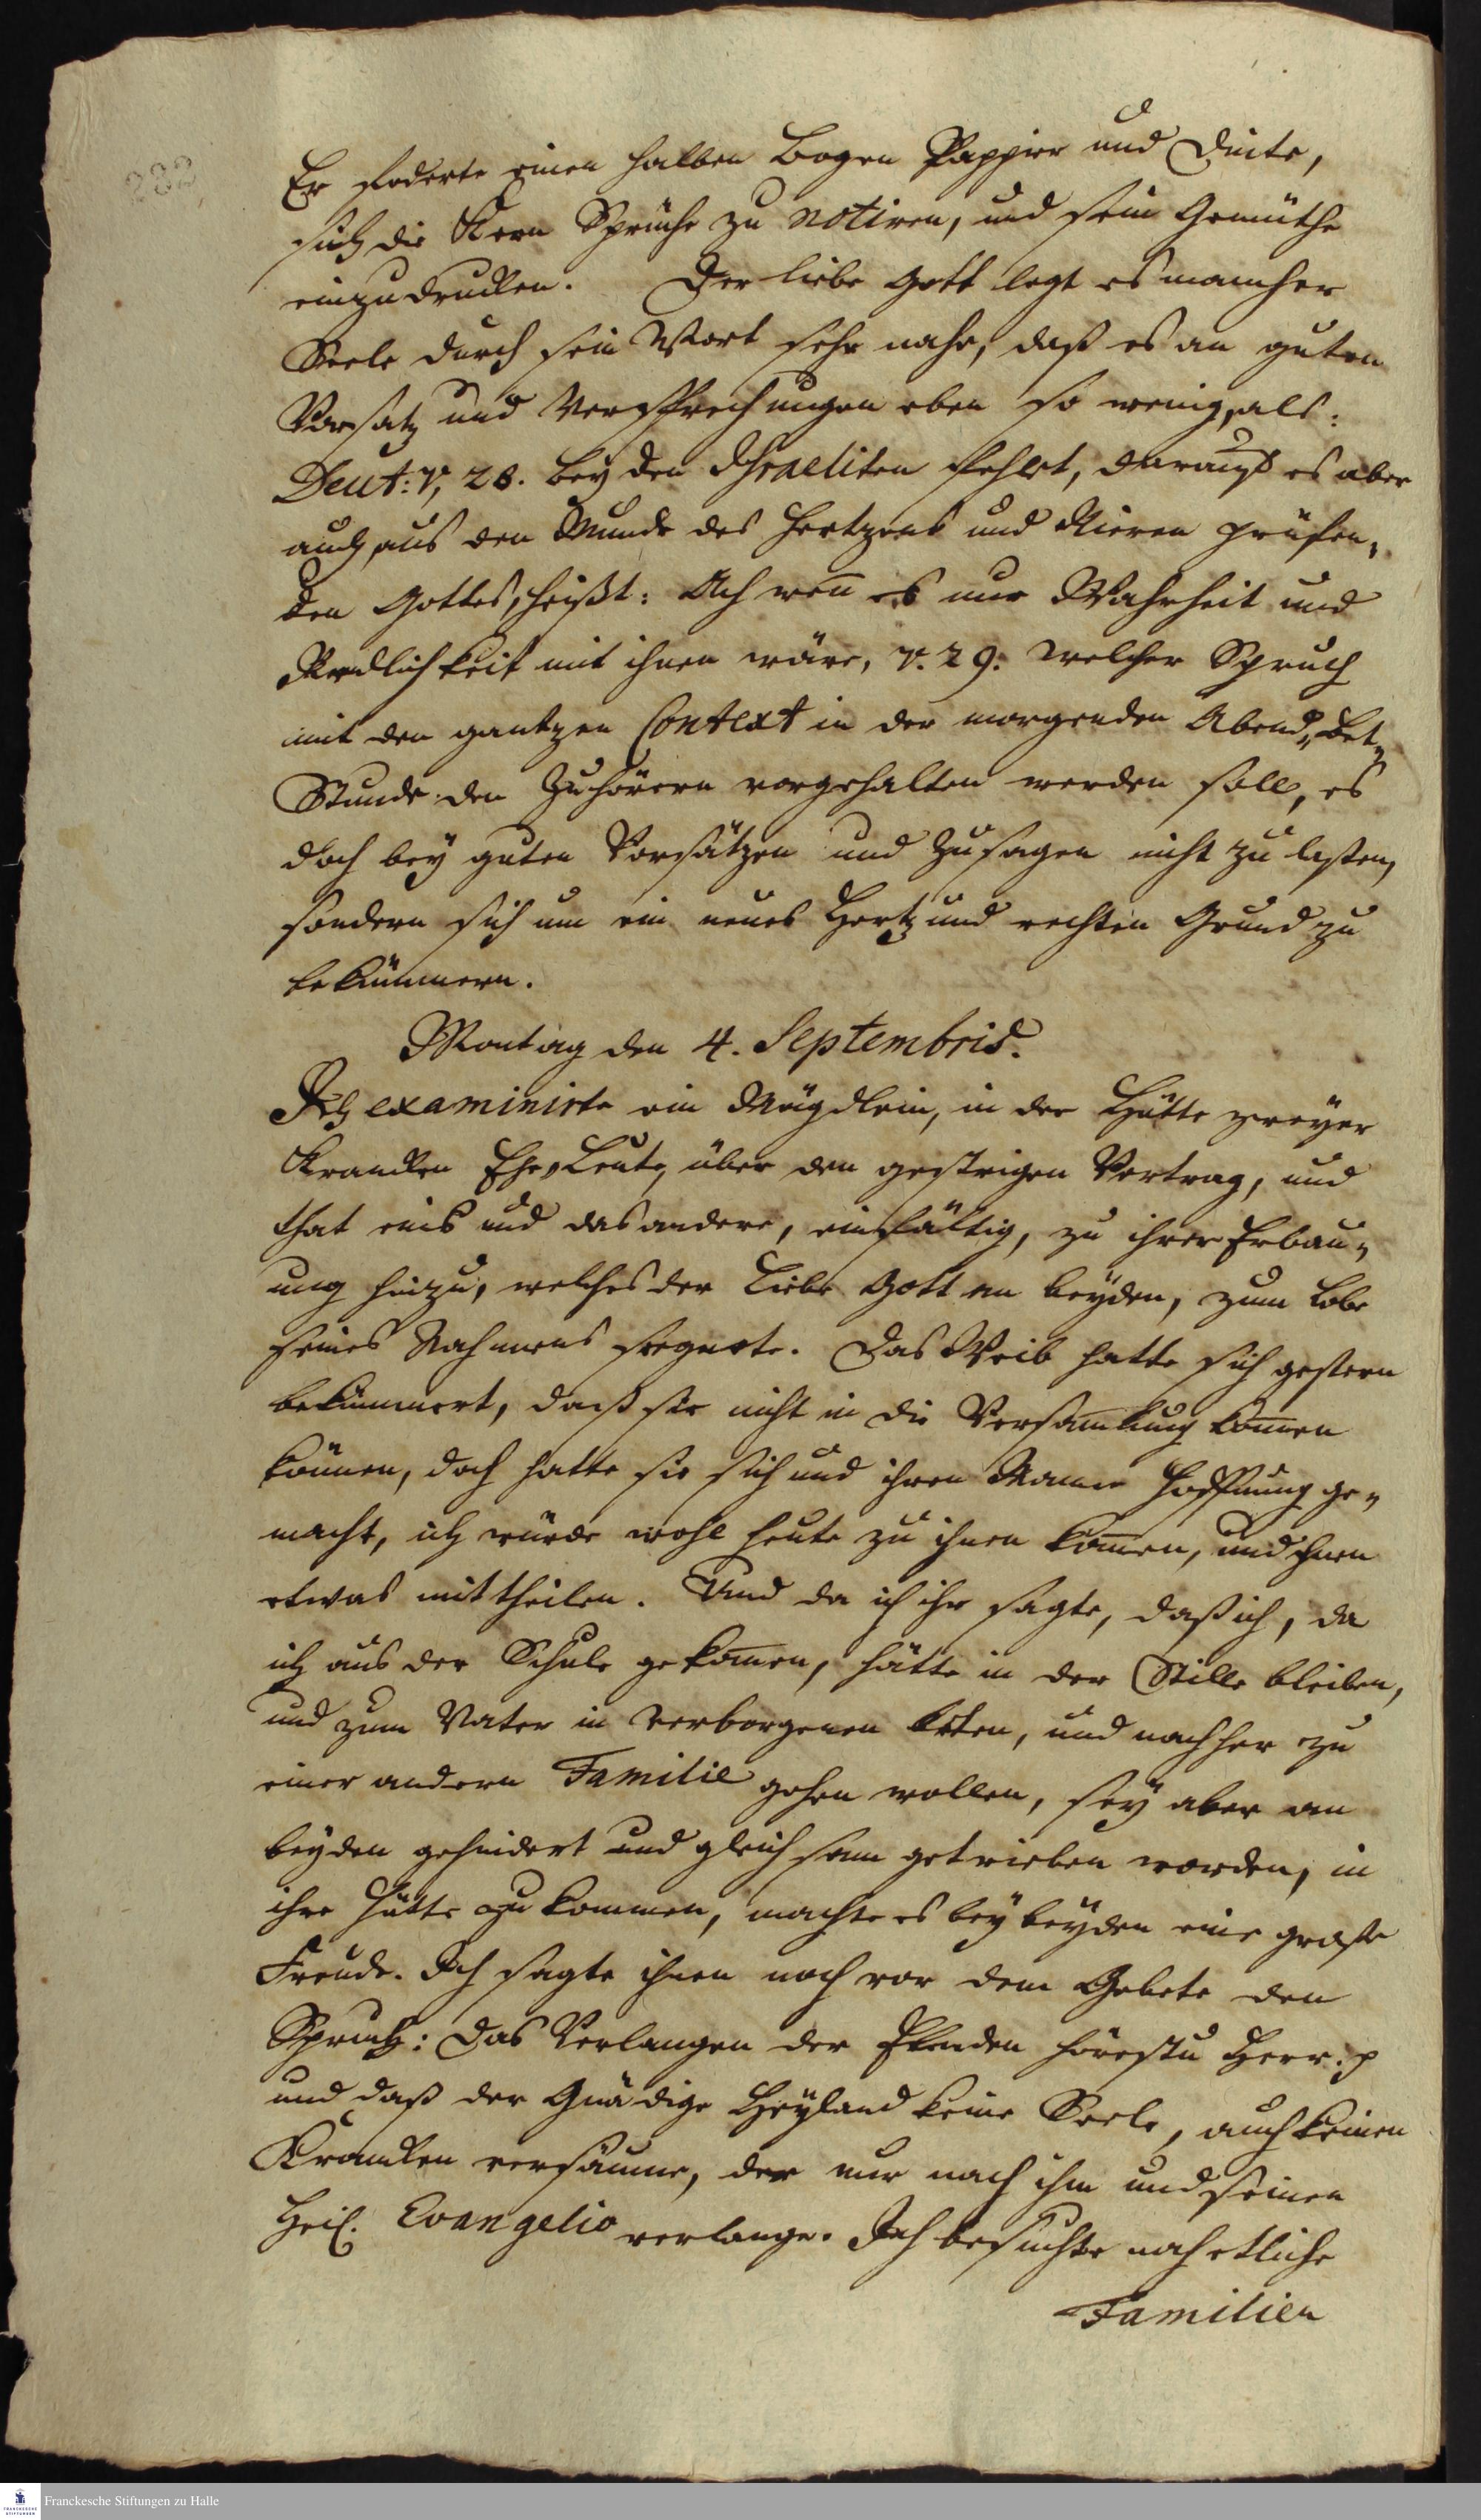 232
Er foderte einen halben Bogen Pappier und Dinte,
sich die Kern Sprüche zu notiren, und sein Gemüthe
einzudrucken. Der liebe Gott legt es mancher
Seele durch sein Wort sehr nahe, daß es an guten
Vorsatz und Versprechungen eben so wenig, als:
Deut: V, 28. bey den Israeliten fehlet, darauf es aber
auch, aus den Munde des Hertzens und Nieren prüfen„
den Gottes, heißt: Ach wen̅ es nur Wahrheit und
Redlichkeit mit ihnen wäre, v. 29. welcher Spruch
mit den gantzen Context in der morgenden Abend„Bet„
Stunde den Zuhörern vorgehalten werden soll, es
doch bey guten Vorsätzen und Zusagen nicht zu laßen,
sondern sich um ein neues Hertz und rechten Grund zu
bekümmern.
Montag den 4. Septembris.
Ich examinirte ein Mägdlein, in der Hütte zweyer
Krancken Ehe„Leute, über den gestrigen Vortrag, und
that eins und das andere, einfältig, zu ihrer Erbau„
ung hinzu, welches der Liebe Gott an beyden, zum Lobe
seines Nahmens segnete. Das Weib hatte sich gestern
bekümmert, daß sie nicht in die Versam̅lung kom̅en
können, doch hatte sie sich und ihren Manne Hoffnung ge„
macht, ich würde wohl heute zu ihnen kom̅en, und ihnen
etwas mittheilen. Und da ich ihr sagte, daß ich, da
ich aus der Schule gekom̅en, hätte in der Stille bleiben,
und zum Vater in verborgenen beten, und nachher zu
einer andern Familie gehen wollen, sey aber an
beyden gehindert und gleichsam getrieben worden, in
ihre Hütte zu kommen, machte es bey beyden eine große
Freude. Ich sagte ihnen noch vor dem Gebete den
Spruch: Das Verlangen der Elenden hörestu Herr. p
und daß der Gnädige Heyland keine Seele, auch keinen
Krancken versäume, der nur nach ihm und seinen
Heil. Evangelio verlange. Ich besuchte noch etliche
Familien
Franckesche Stiftungen zu Halle